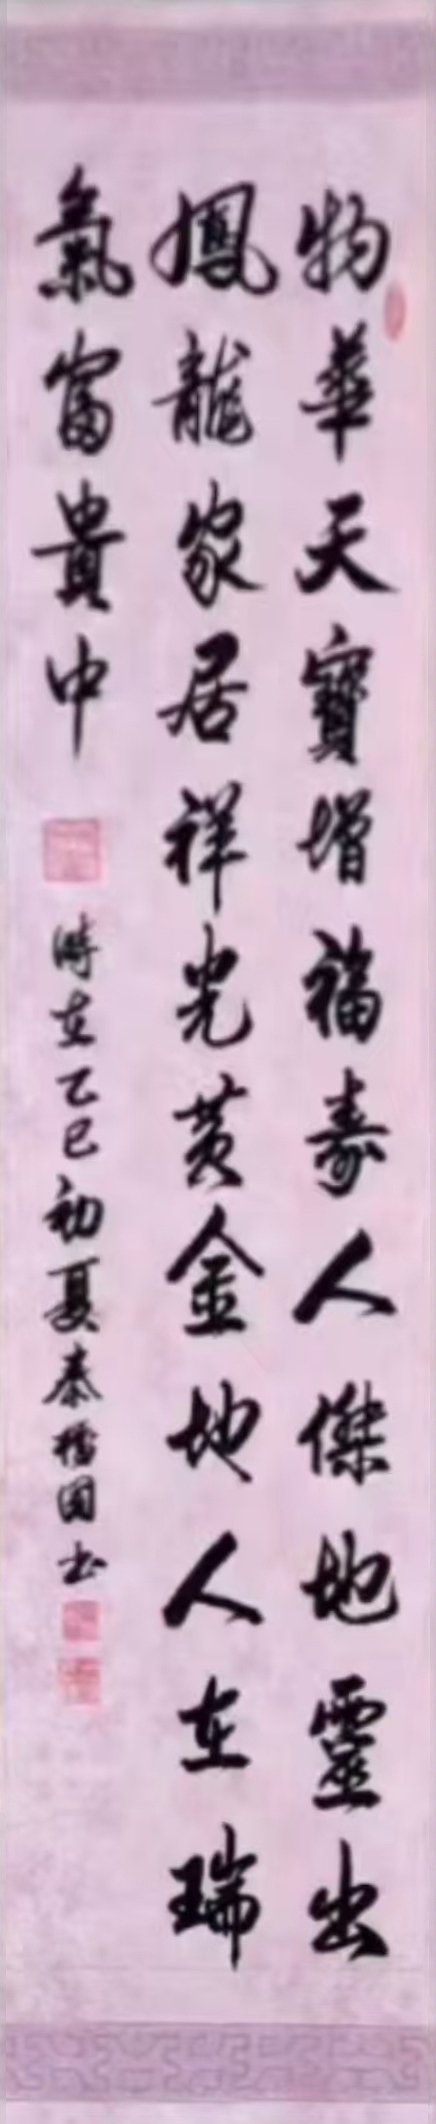 物華天寶增福壽人傑地靈出
鳳龍家居祥光黃金地人在瑞
氣富貴中
時在乙巳初夏秦橋國书